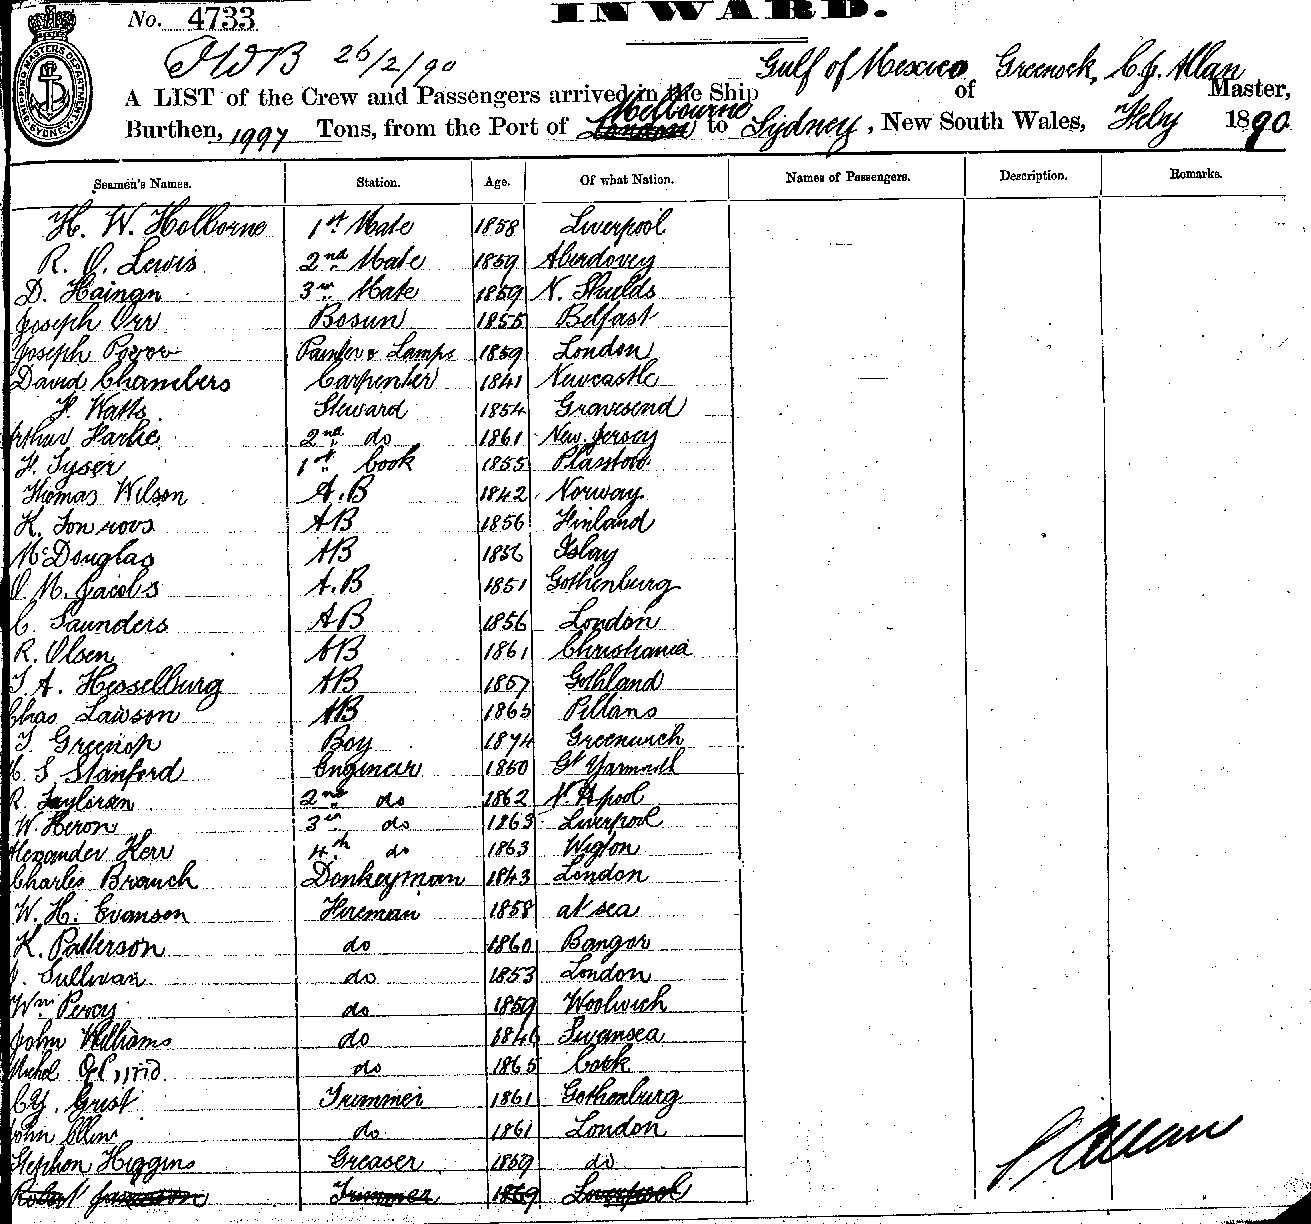 INWARD.
No. 4733
26/2/90
Gulf of Mexico Greenock, C. J. Allan
A LIST of the Crew and Passengers arrived in the Ship of Master,
Melbourne
Burthen, 1997 Tons, from the Port of London to Sydney, New South Wales, Feby 1890
Seamen's Names. Station. Age. Of what Nation. Names of Passengers. Description. Remarks.
H. W. Holborne 1st Mate 1858 Liverpool
R. O. Lewis 2nd Mate 1859 Aberdovey
D. Hainan 3rd Mate 1859 N. Shields
Joseph Orr Bosun 1855 Belfast
Joseph Painter & Lamps 1859 London
David Chambers Carpenter 1841 Newcastle
F. Watts Steward 1854 Gravesend
Arthur Harke 2nd do 1861 New Jersey
F. Tyser 1st Cook 1855 Plastow
Thomas Wilson A.B 1842 Norway
K. AB 1856 Finland
McDouglas AB 1856 Islay
O. M. Jacobs A.B 1851 Gothenburg
C. Saunders AB 1856 London
R. Olsen AB 1861 Christiania
T. A. Hesselburg AB 1857 Gothland
Chas Lawson AB 1865 Pillans
T. Greenop Boy 1874 Greenwich
S. Stanford Engineer 1850 Gt Yarmouth
R. Taylorson 2nd do 1862 H'pool
W. Heron 3rd do 1863 Liverpool
Alexander Kerr 4th do 1863 Wigton
Charles Branch Donkeyman 1843 London
W. H. Evanson Fireman 1858 at sea
K. Patterson do 1860 Bangor
Sullivan do 1853 London
Wm Percy do 1859 Woolwich
John Williams do 1846 Swansea
Michel do 1865 Cork
Grist Trimmer 1861 Gothenburg
John do 1861 London
Stephen Higgins Greaser 1859 do
Robert Jameson Trimmer 1869 Liverpool
C J Allan